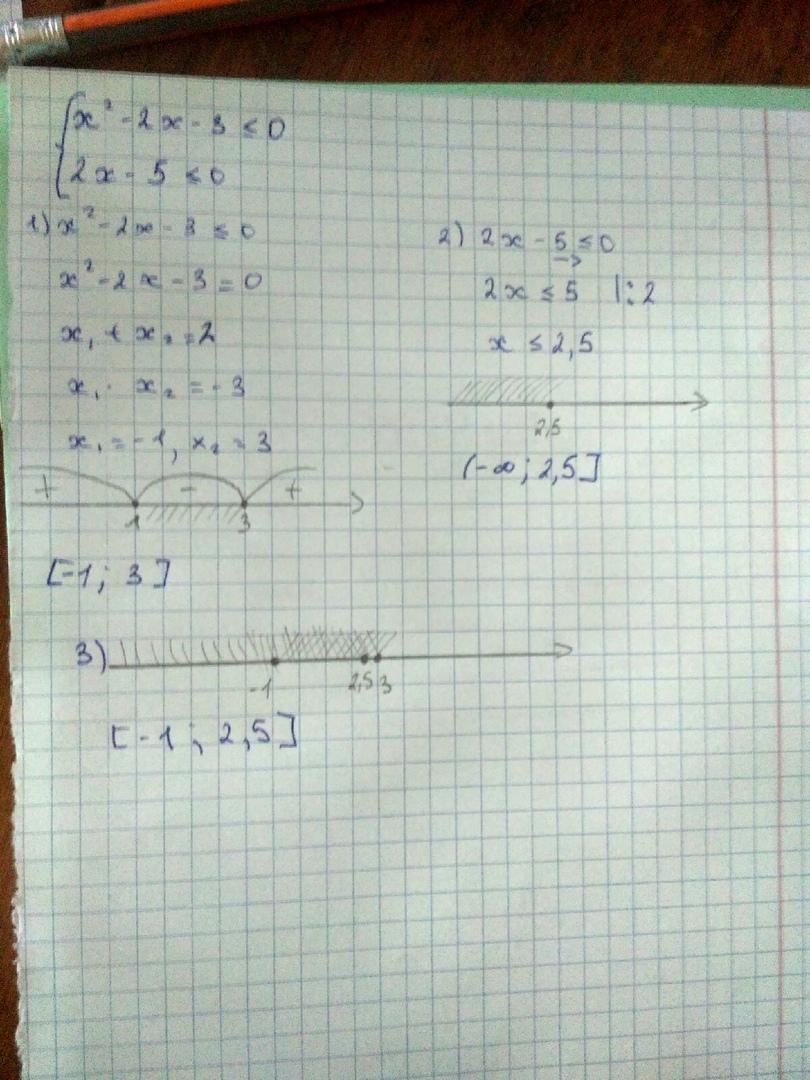 {x² - 2x - 3 ≤ 0
{2x - 5 ≤ 0
1) x² - 2x - 3 ≤ 0
x² - 2x - 3 = 0
x₁ + x₂ = 2
x₁ · x₂ = -3
x₁ = -1, x₂ = 3
+ - +
-1 3
[-1; 3]
2) 2x - 5 ≤ 0
2x ≤ 5 |:2
x ≤ 2,5
2,5
(-∞; 2,5]
3)
-1 2,5 3
[-1; 2,5]